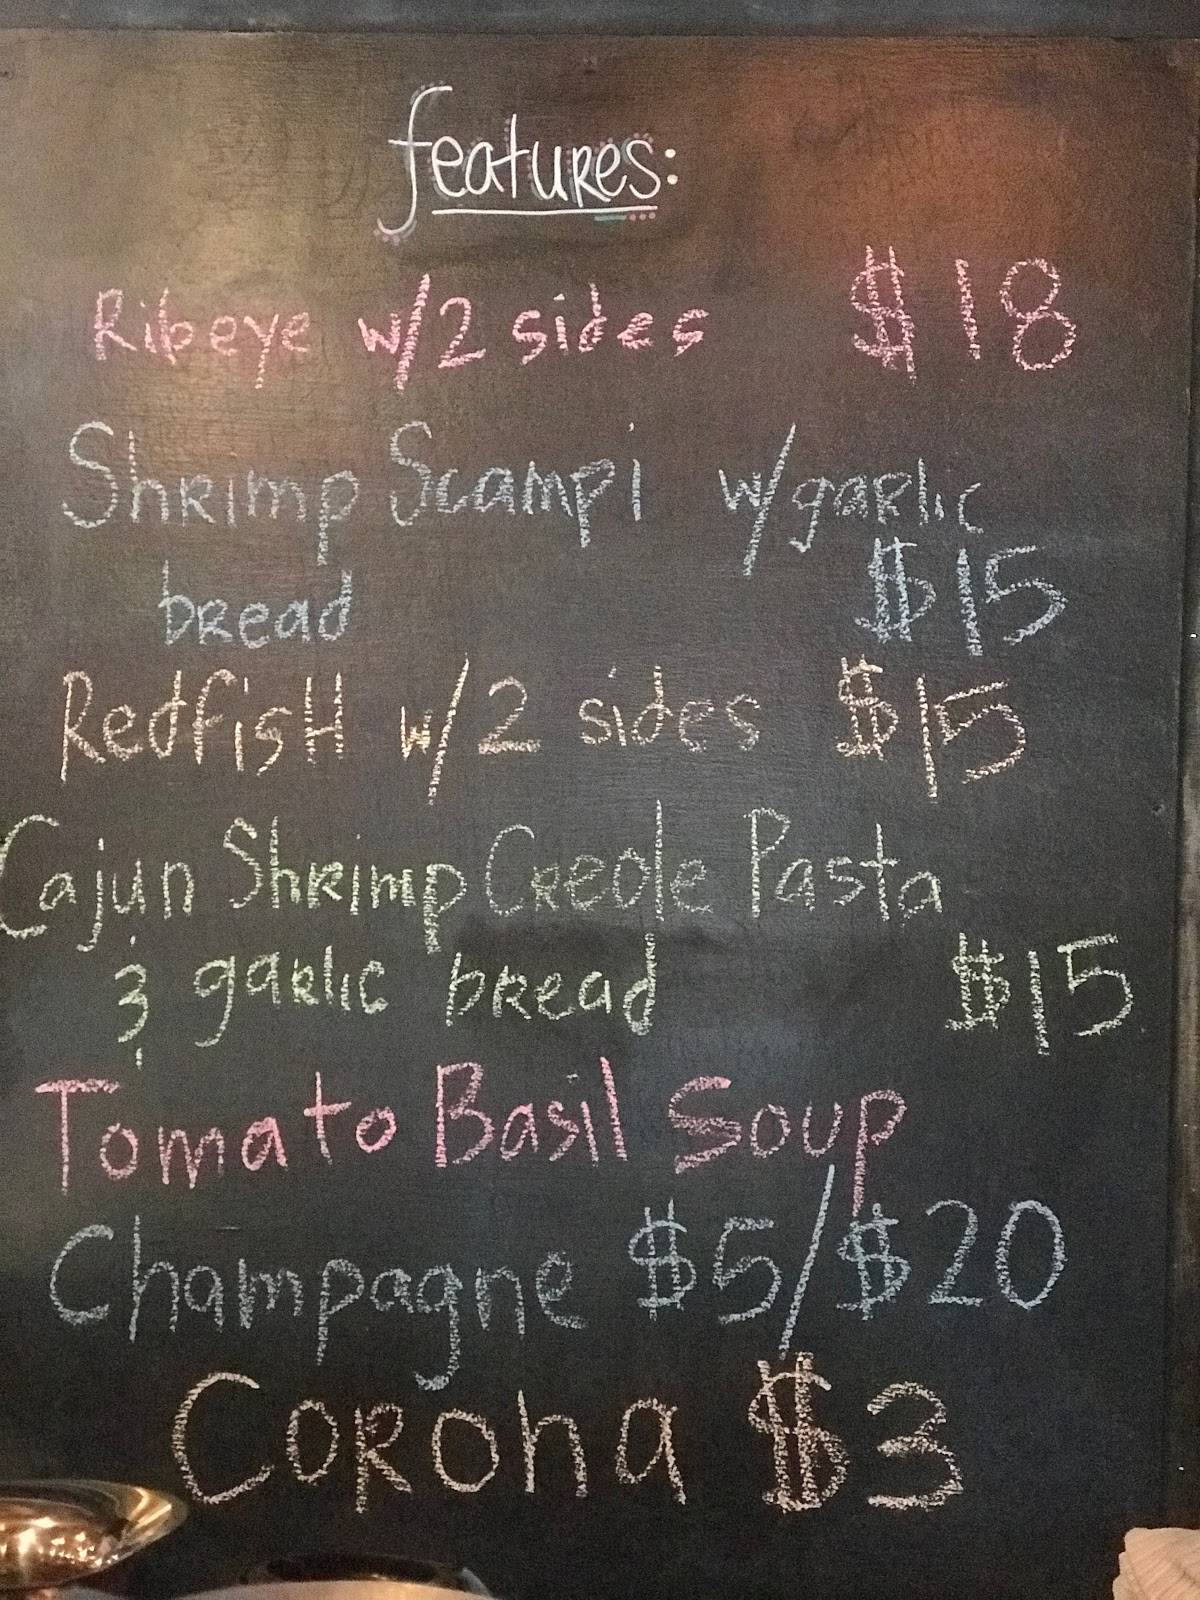 features:
Ribeye w/2 sides $18
Shrimp Scampi w/garlic
bread $15
Redfish w/2 sides $15
Cajun Shrimp Creole Pasta
& garlic bread $15
Tomato Basil Soup
Champagne $5/$20
Corona $3